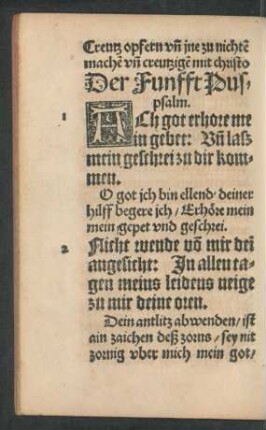 Creutz opfern vñ jne zu nichtē
machē vñ creutzigē mit christo
Der Funfft Pus-
psalm.
1 ACh got erhöre me
in gebet: Vñ lasz
mein geschrei zu dir kom-
men.
O got jch bin ellend / deiner
hilff begere jch / Erhöre mein
mein gepet vnd geschrei.
2 Nicht wende vō mir dei
angesicht: In allen ta-
gen meins leidens neige
zu mir deine oren.
Dein antlitz abwenden / ist
ain zaichen deß zorns / sey nit
zornig vber mich mein got /